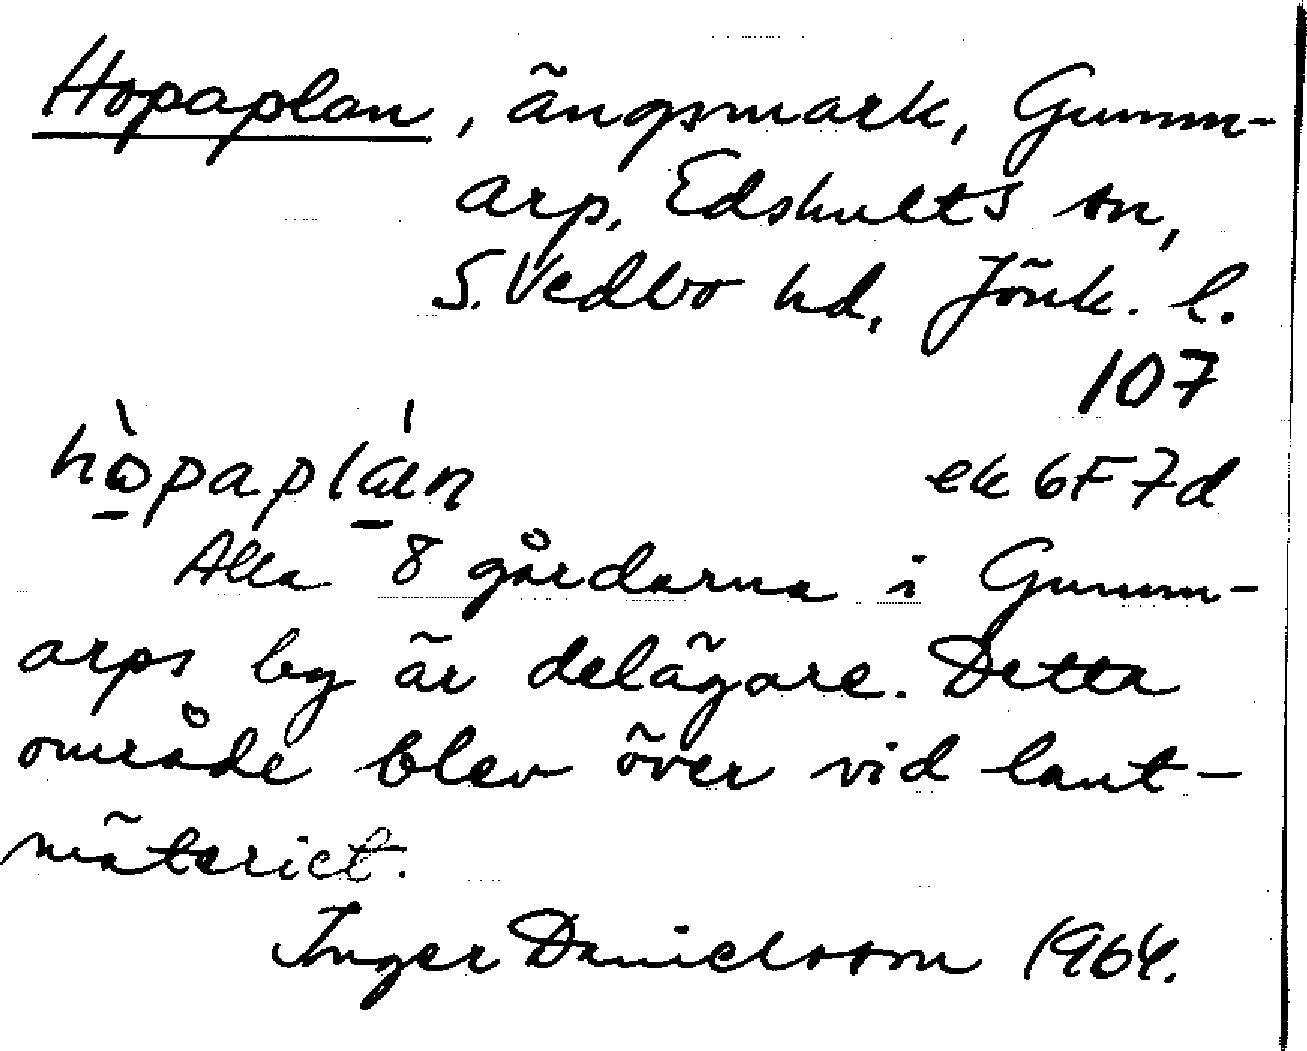 Hopaplan, ängsmark, Gumm-
arp, Edshults sn,
S. Vedbo hd, Jönk. l.
107
hὼpaplán
ek 6F 7d
Alla 8 gårdarna i Gumm-
arps by är delägare. Detta
område blev över vid lant-
mäteriet.
Inger Danielsson 1964.